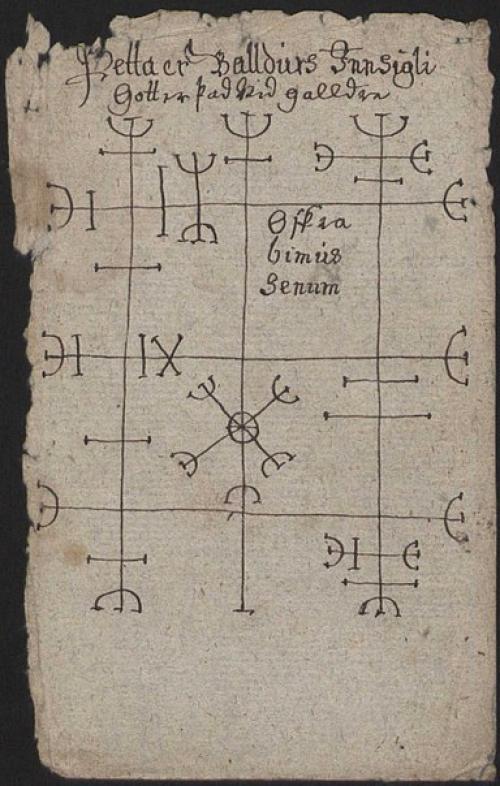 Þetta er Balldúrs Innsigli
Gott er þad Vid galldre
Offra
bimús
Senum